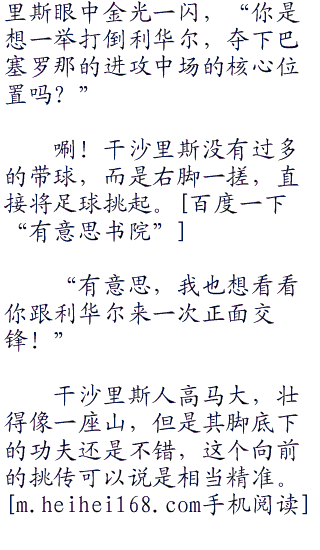 里斯眼中金光一闪，“你是
想一举打倒利华尔，夺下巴
塞罗那的进攻中场的核心位
置吗？”
唰！干沙里斯没有过多
的带球，而是右脚一搓，直
接将足球挑起。[百度一下
“有意思书院”]
“有意思，我也想看看
你跟利华尔来一次正面交
锋！”
干沙里斯人高马大，壮
得像一座山，但是其脚底下
的功夫还是不错，这个向前
的挑传可以说是相当精准。
[m.heihei168.com手机阅读]